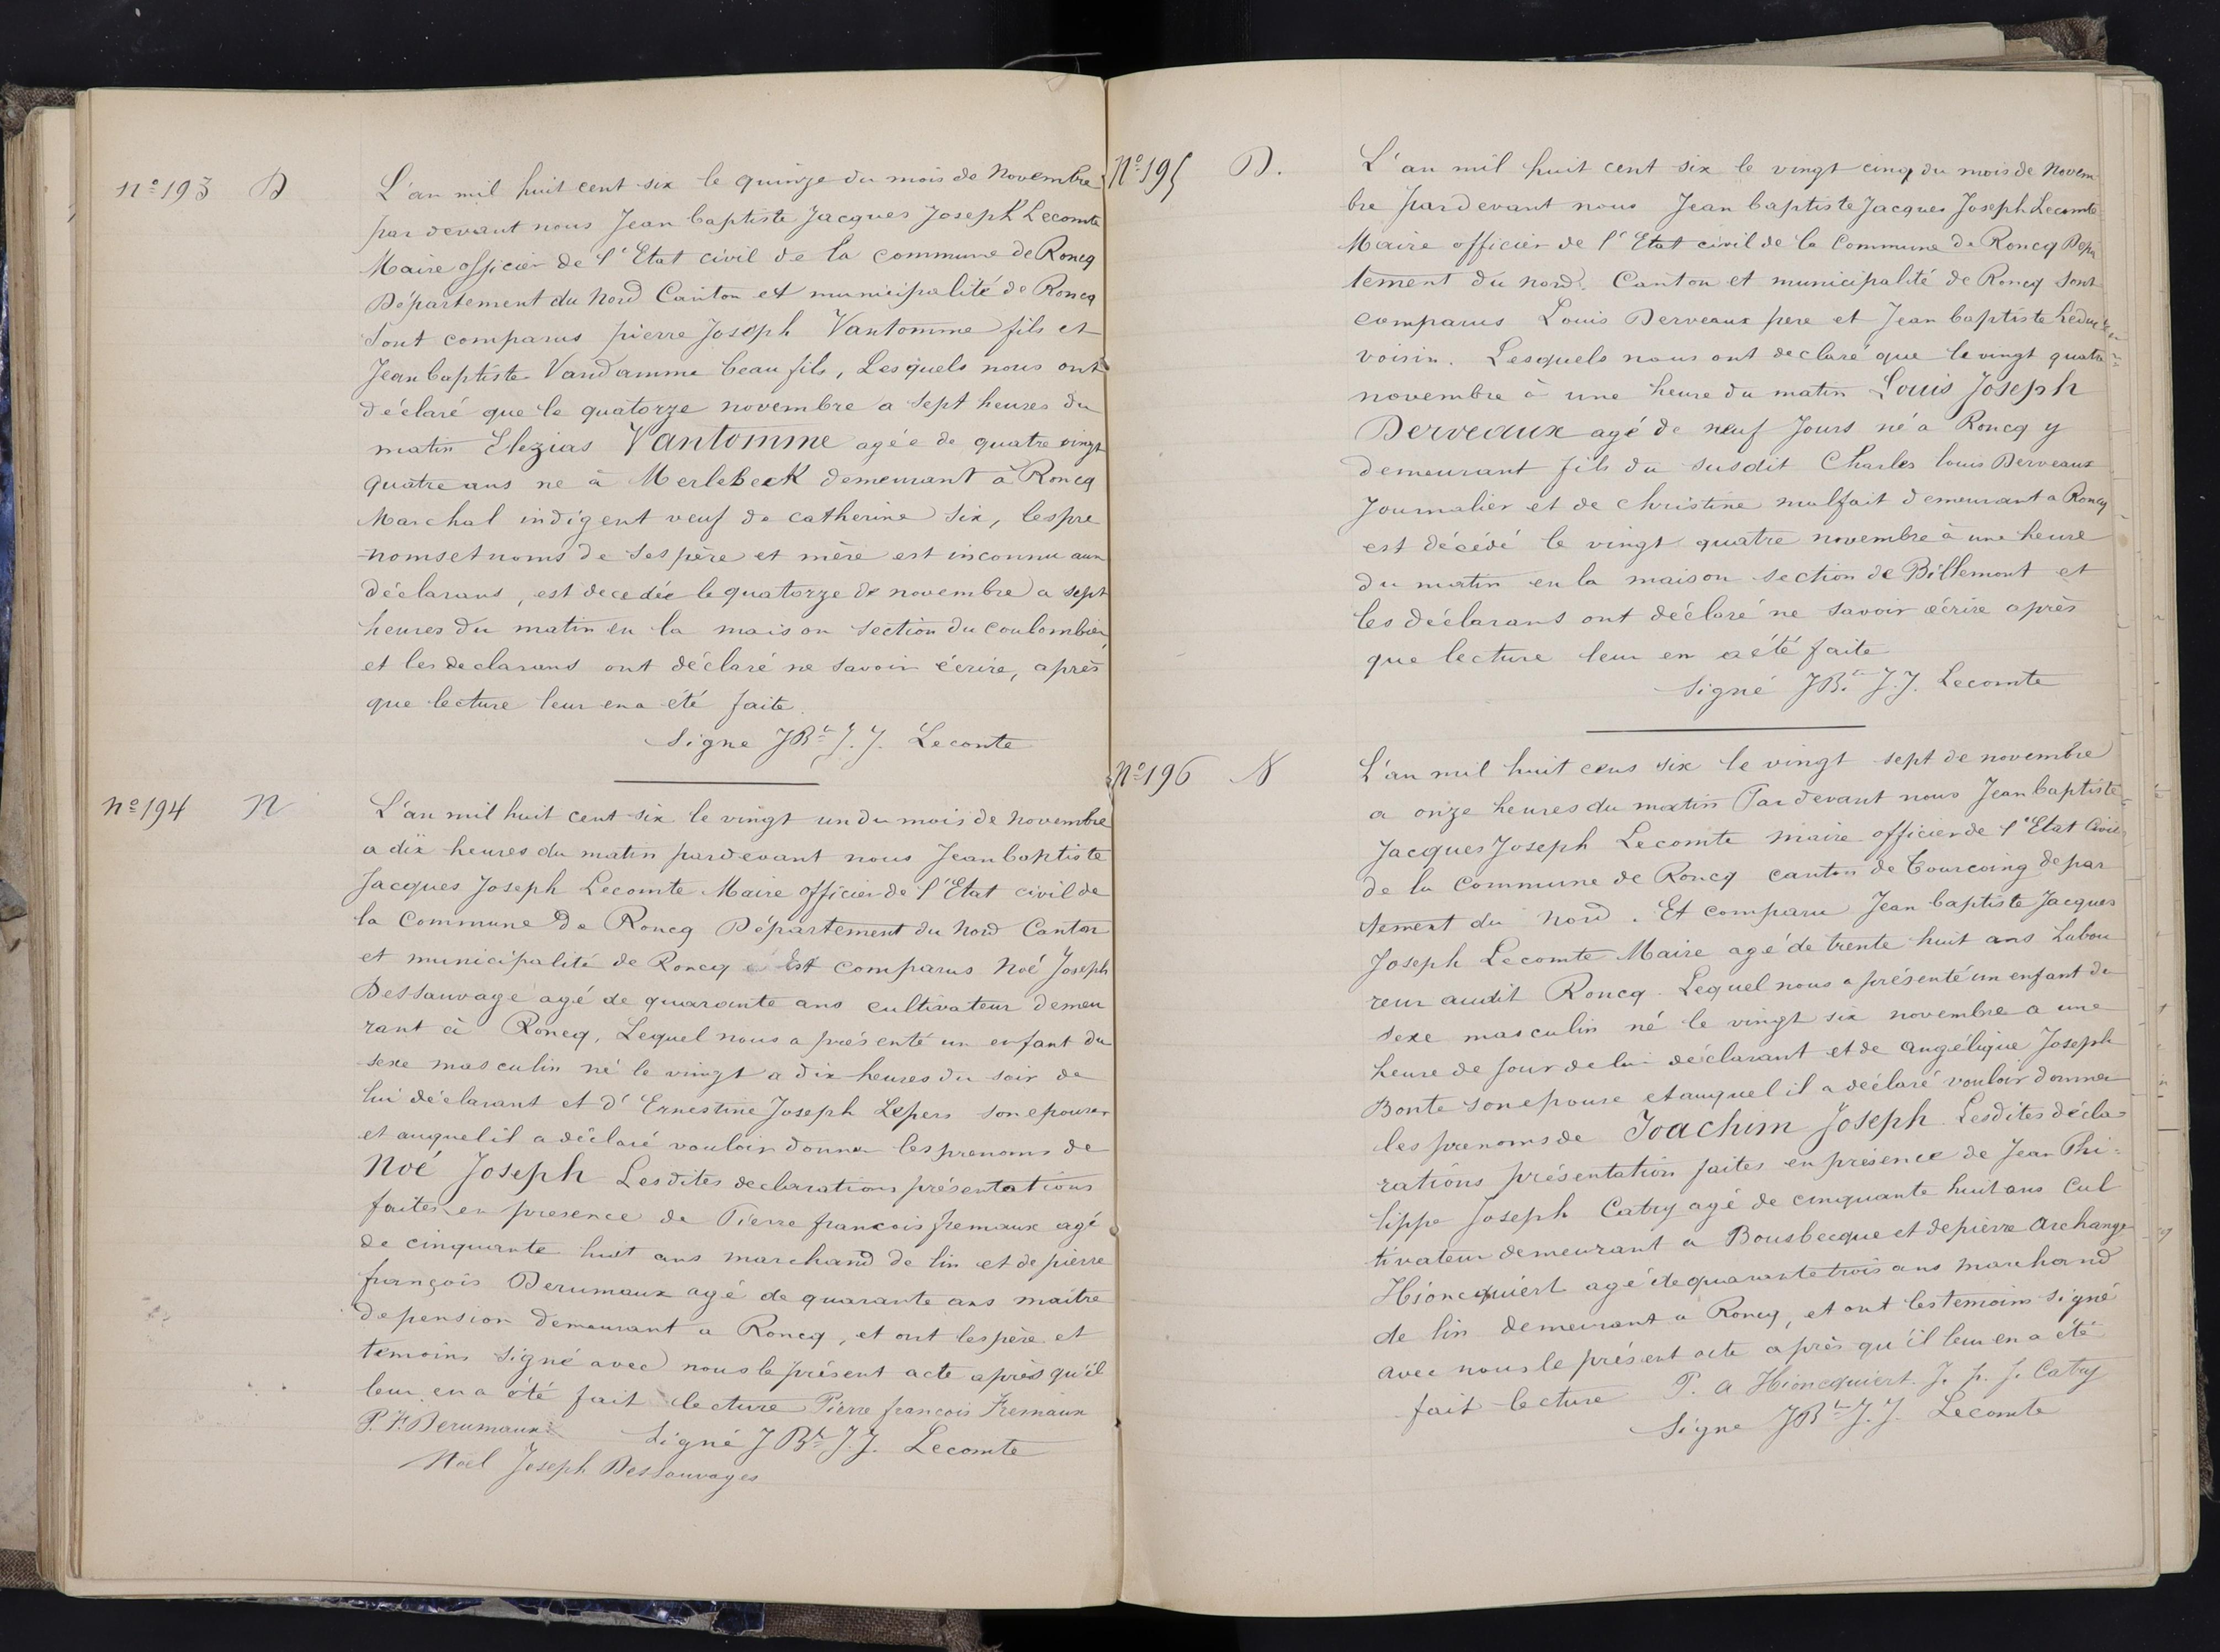 n.º 193 D
L'an mil huit cent six le quinze du mois de Novembre
par devant nous Jean baptiste Jacques Joseph Lecomte
Maire officier de l'Etat civil de la commune de Roncq
Département du Nord Canton et municipalité de Roncq
Sont comparus pierre Joseph Vantomme fils et
Jean baptiste Vandamme beau fils, Lesquels nous ont
déclaré que le quatorze novembre a sept heures du
matin Elezias Vantomme agée de quatre vingt
quatre ans ne à Merlebeck demeurant à Roncq
Marchal indigent veuf de catherine Six, les pre
-noms et noms de ses père et mère est inconnu aux
déclarans, est decedée le quatorze de novembre a sept
heures du matin en la maison section du coulombier
et les declarans ont déclaré ne savoir écrire, après
que lecture leur en a été faite.
Signe JBte J. J. Leconte
nº 194 N
L'an mil huit cent six le vingt un du mois de Novembre
a dix heures du matin pardevant nous Jean baptiste
Jacques Joseph Lecomte Maire officier de l'Etat civil de
la Commune De Roncq Département du Nord Canton
et municipalité de Roncq Est comparus Noé Joseph
Dessauvage agé de quarante ans cultivateur demeu
rant à Roncq, Lequel nous a présenté un enfant du
sexe masculin né le vingt a dix heures du soir de
lui déclarant et d'Ernestine Joseph Lepers son epouse
et auquel il a déclaré vouloir donner les prenoms de
Noé Joseph Lesdites declarations présentations
faites en presence de Pierre francois fremaux agé
de cinquante huit ans marchand de lin et de pierre
françois Derumaux agé de quarante ans maitre
de pension demeurant a Roncq, et ont les père et
temoins signé avec nous le présent acte après qu'il
leur en a été fait lecture Pierre francois Fremaux
P. F. Derumaux Signé J Bte J. J. Lecomte
Noël Joseph Dessauvages
Nº 195 D.
L'an mil huit cent six le vingt cinq du mois de Novem
bre pardevant nous Jean baptiste Jacques Joseph Lecomte
Maire officier de l'Etat civil de la Commune de Roncq Depar
tement du nord. Canton et municipalité de Roncq Sont
comparus Louis Derveaux pere et Jean baptiste Leduc
voisin. Lesquels nous ont declaré que le vingt quatre
novembre à une heure du matin Louis Joseph
Derveaux agé de neuf Jours né a Roncq y
demeurant fils du susdit Charles louis Derveaux
Journalier et de christine malfait demeurant a Roncq
est décédé le vingt quatre novembre à une heure
du matin en la maison section de Billemont et
les déclarans ont déclaré ne savoir écrire après
que lecture leur en a été faite
Signé JB.te J. J. Lecomte
Nº 196 N
L'an mil huit cens six le vingt sept de novembre
a onze heures du matin Par devant nous Jean baptiste
Jacques Joseph Lecomte Maire officier de l'Etat Civil
de la Commune de Roncq canton de Tourcoing depar
tement du Nord. Et comparu Jean baptiste Jacques
Joseph Lecomte Maire agé de trente huit ans Labou
reur audit Roncq. Lequel nous a présenté un enfant du
sexe masculin né le vingt six novembre a une
heure de Jour de lui déclarant et de Angélique Joseph
Bonte son epouse et auquel il a déclaré vouloir donner
les prenoms de Joachim Joseph. Lesdites décla=
rations présentation faites en présence de Jean Phi=
lippe Joseph Catry agé de cinquante huit ans Cul
tivateur demeurant a Bousbecque et de pierre Archange
Hioncquiert agé de quarante trois ans marchand
de lin demeurant a Roncq, et ont les temoins signé
avec nous le présent acte après qu'il leur en a été
fait lecture P. A Hioncquiert. J. p. J. Catry
Signe JBte J. J. Lecomte